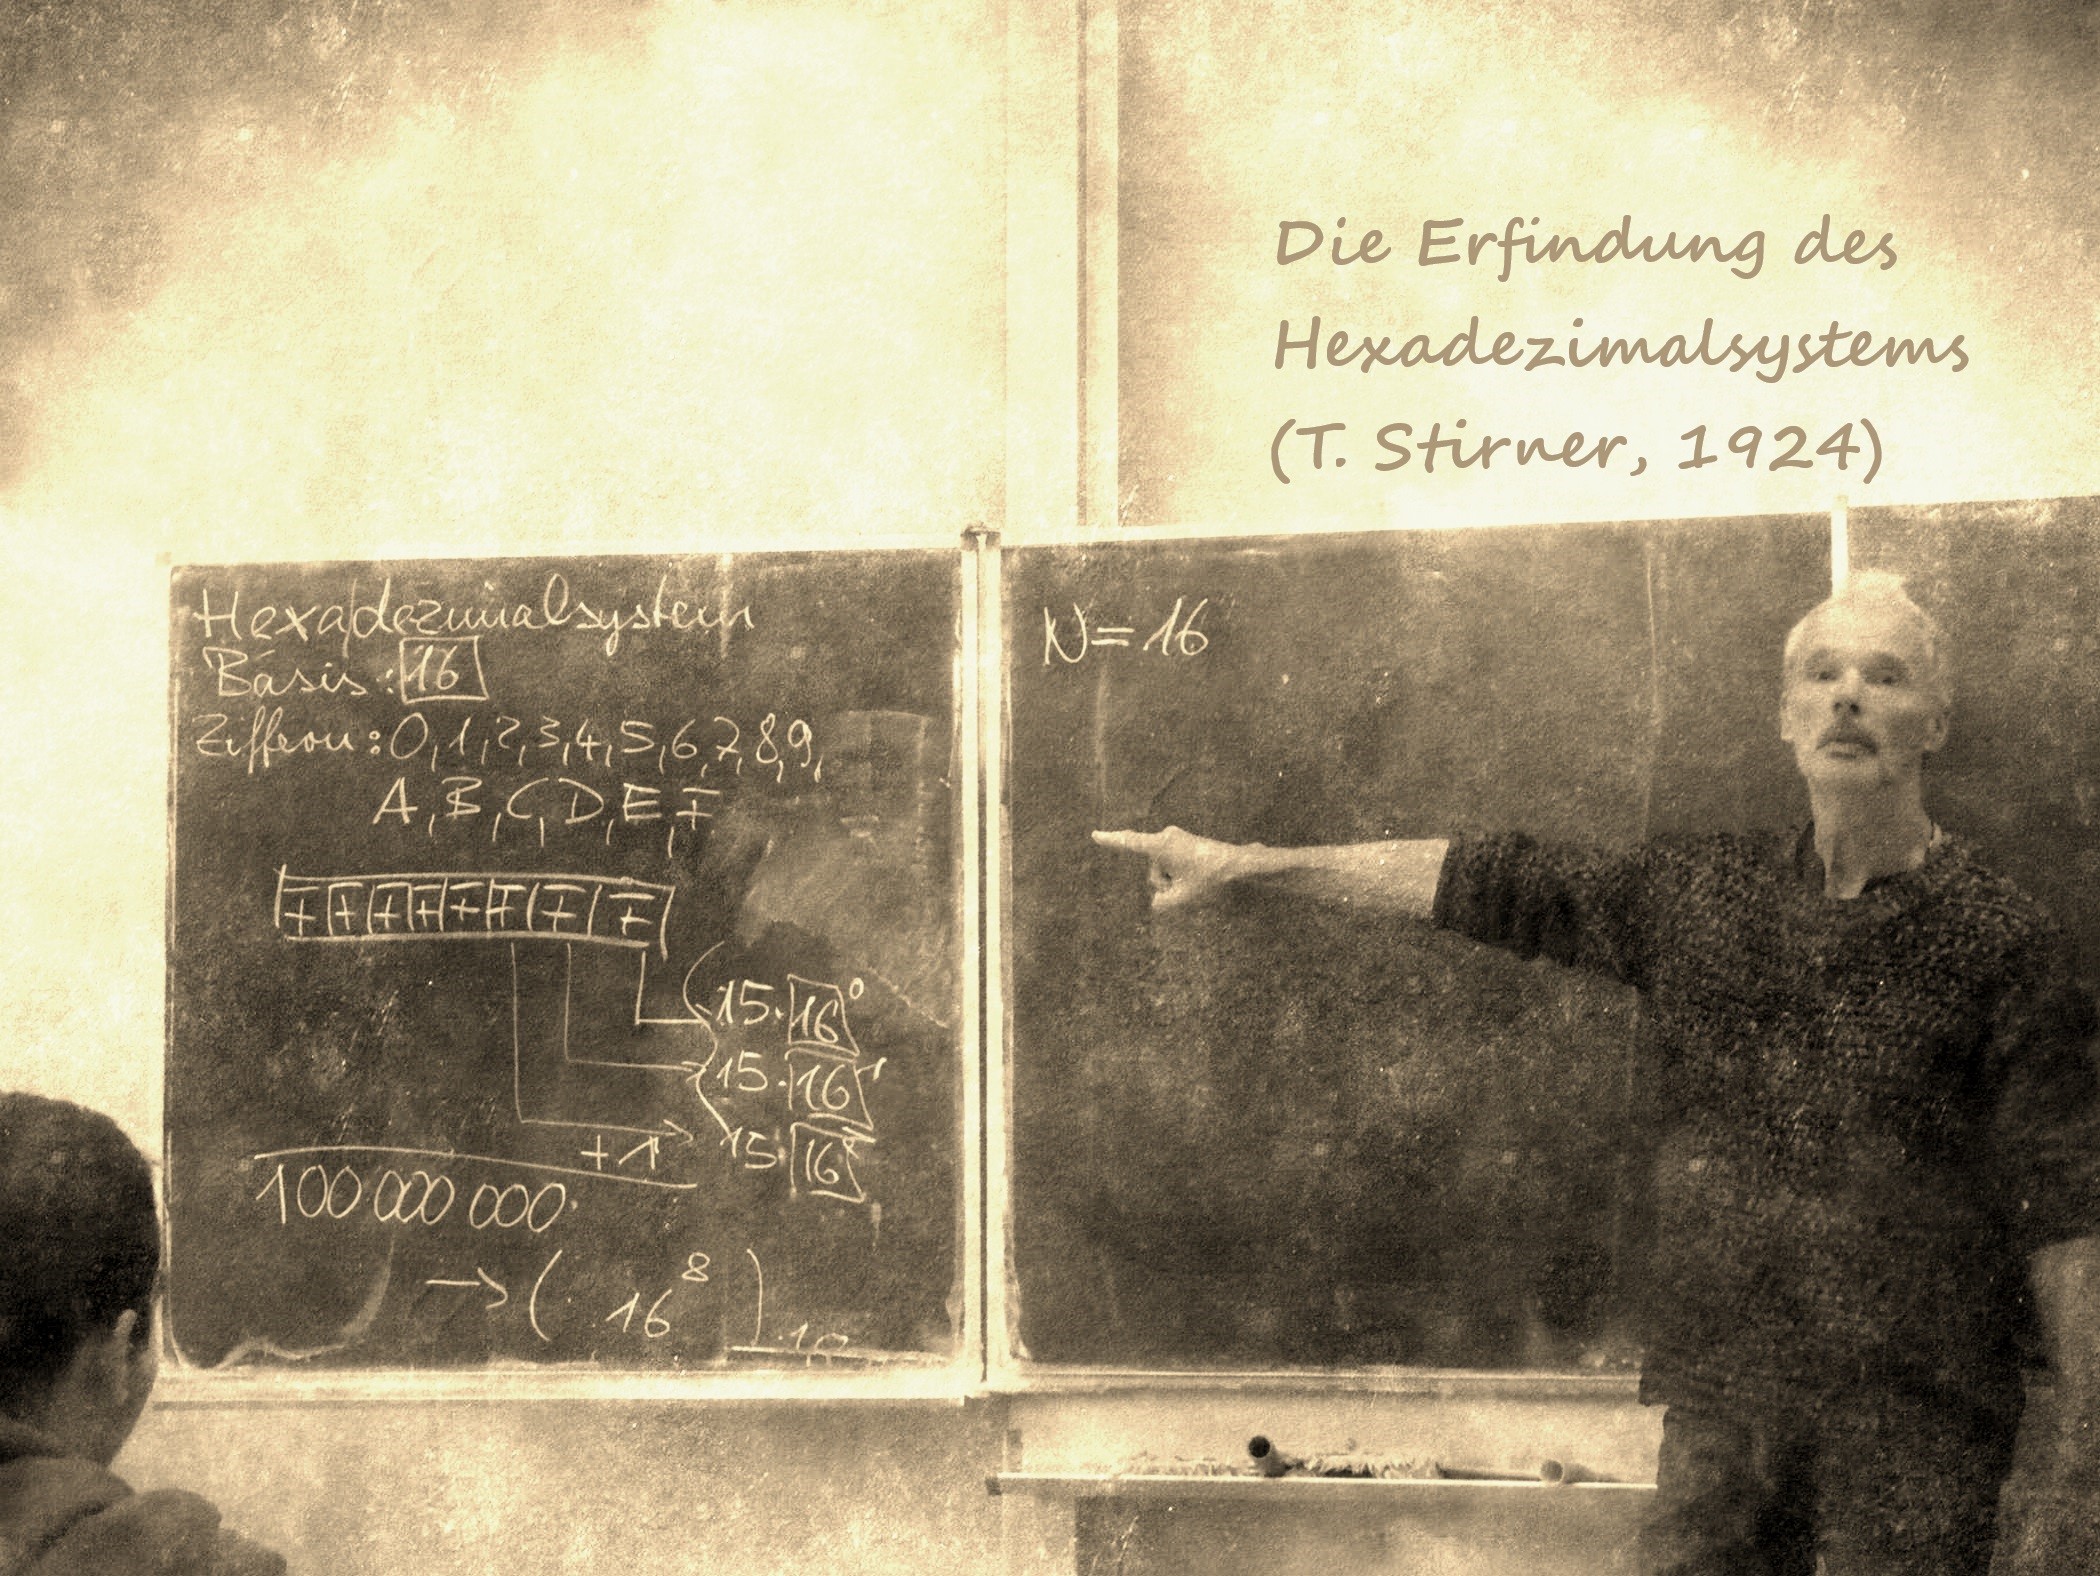 Die Erfindung des
Hexadezimalsystems
(T. Stirner, 1924)
Hexadezimalsystem
Basis: 16
Ziffern: 0, 1, 2, 3, 4, 5, 6, 7, 8, 9,
A, B, C, D, E, F
F F F F F F F F
15 · 16⁰
15 · 16¹
+ 1 15 · 16
100 000 000
→ ( 16⁸ ) 10
N = 16